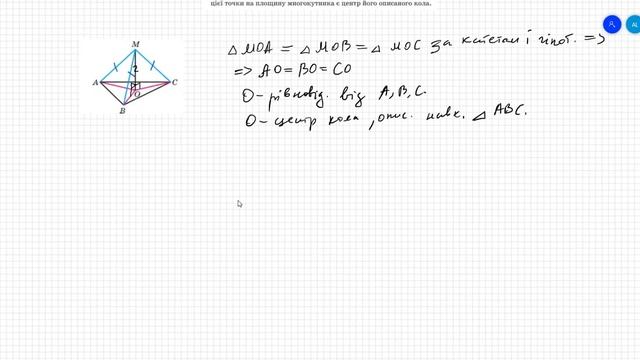 цієї точки на площину многокутника є центр його описаного кола.
△ MOA = △ MOB = △ MOC за катетом і гіпот. =>
=> AO = BO = CO
O - рівновід. від A, B, C.
O - центр кола, опис. навк. △ ABC.
M
A
C
O
B
AL